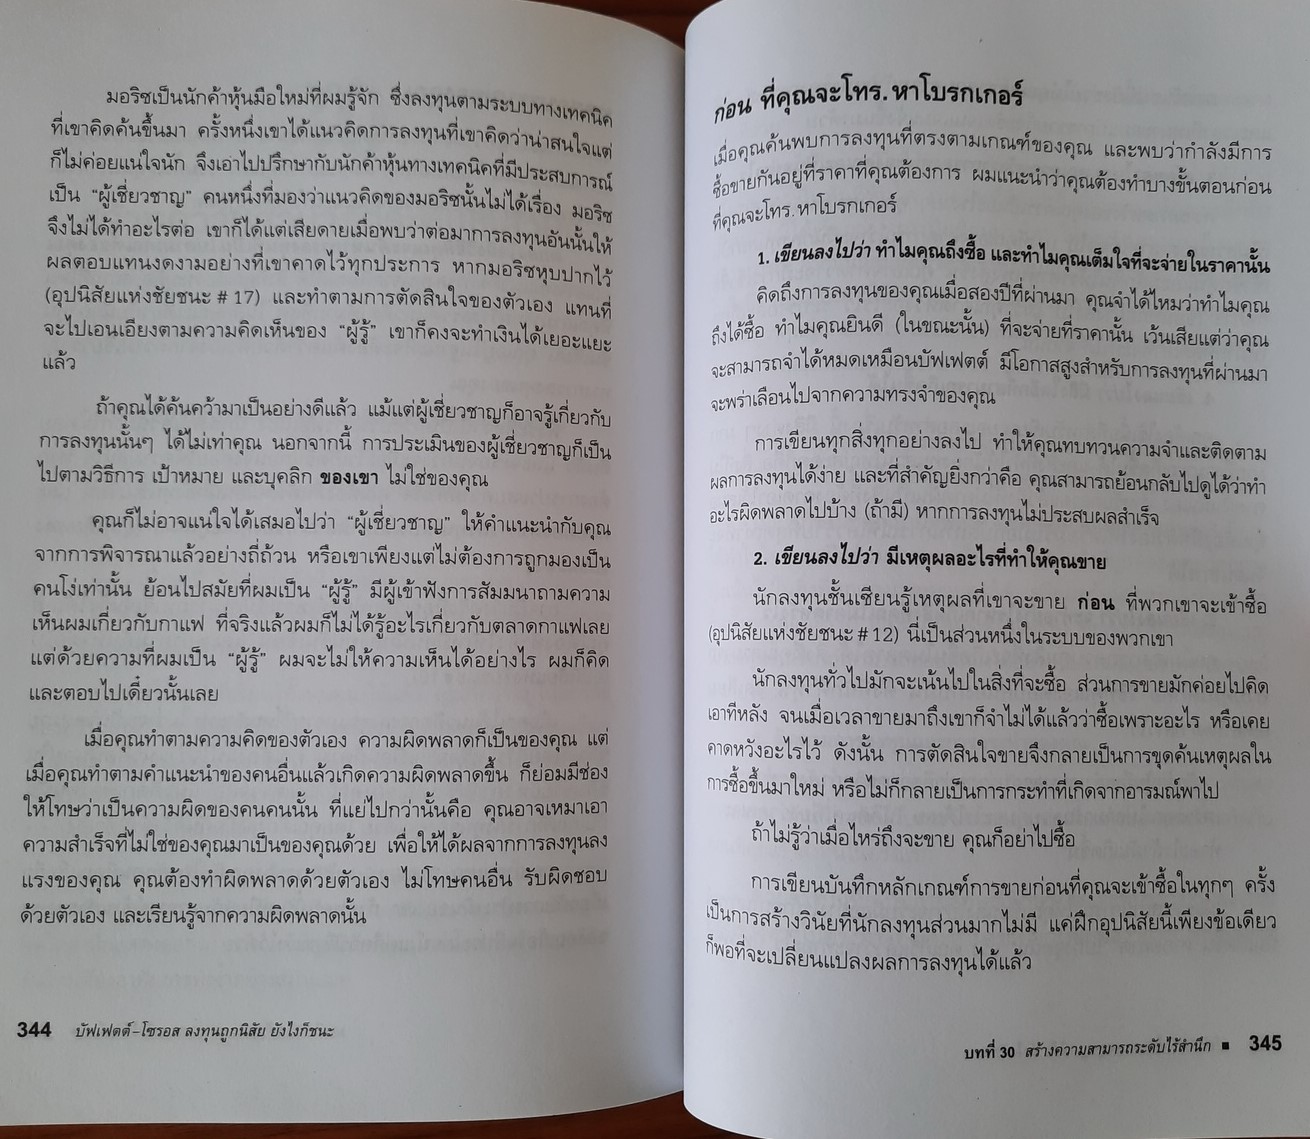 มอริซเป็นนักค้าหุ้นมือใหม่ที่ผมรู้จัก ซึ่งลงทุนตามระบบทางเทคนิค
ที่เขาคิดค้นขึ้นมา ครั้งหนึ่งเขาได้แนวคิดการลงทุนที่เขาคิดว่าน่าสนใจแต่
ก็ไม่ค่อยแน่ใจนัก จึงเอาไปปรึกษากับนักค้าหุ้นทางเทคนิคที่มีประสบการณ์
เป็น “ผู้เชี่ยวชาญ” คนหนึ่งที่มองว่าแนวคิดของมอริซนั้นไม่ได้เรื่อง มอริซ
จึงไม่ได้ทำอะไรต่อ เขาก็ได้แต่เสียดายเมื่อพบว่าต่อมาการลงทุนอันนั้นให้
ผลตอบแทนงดงามอย่างที่เขาคาดไว้ทุกประการ หากมอริซหุบปากไว้
(อุปนิสัยแห่งชัยชนะ # 17) และทำตามการตัดสินใจของตัวเอง แทนที่
จะไปเอนเอียงตามความคิดเห็นของ “ผู้รู้” เขาก็คงจะทำเงินได้เยอะแยะ
แล้ว
ถ้าคุณได้ค้นคว้ามาเป็นอย่างดีแล้ว แม้แต่ผู้เชี่ยวชาญก็อาจรู้เกี่ยวกับ
การลงทุนนั้นๆ ได้ไม่เท่าคุณ นอกจากนี้ การประเมินของผู้เชี่ยวชาญก็เป็น
ไปตามวิธีการ เป้าหมาย และบุคลิก ของเขา ไม่ใช่ของคุณ
คุณก็ไม่อาจแน่ใจได้เสมอไปว่า “ผู้เชี่ยวชาญ” ให้คำแนะนำกับคุณ
จากการพิจารณาแล้วอย่างถี่ถ้วน หรือเขาเพียงแต่ไม่ต้องการถูกมองเป็น
คนโง่เท่านั้น ย้อนไปสมัยที่ผมเป็น “ผู้รู้” มีผู้เข้าฟังการสัมมนาถามความ
เห็นผมเกี่ยวกับกาแฟ ที่จริงแล้วผมก็ไม่ได้รู้อะไรเกี่ยวกับตลาดกาแฟเลย
แต่ด้วยความที่ผมเป็น “ผู้รู้” ผมจะไม่ให้ความเห็นได้อย่างไร ผมก็คิด
และตอบไปเดี๋ยวนั้นเลย
เมื่อคุณทำตามความคิดของตัวเอง ความผิดพลาดก็เป็นของคุณ แต่
เมื่อคุณทำตามคำแนะนำของคนอื่นแล้วเกิดความผิดพลาดขึ้น ก็ย่อมมีช่อง
ให้โทษว่าเป็นความผิดของคนคนนั้น ที่แย่ไปกว่านั้นคือ คุณอาจเหมาเอา
ความสำเร็จที่ไม่ใช่ของคุณมาเป็นของคุณด้วย เพื่อให้ได้ผลจากการลงทุนลง
แรงของคุณ คุณต้องทำผิดพลาดด้วยตัวเอง ไม่โทษคนอื่น รับผิดชอบ
ด้วยตัวเอง และเรียนรู้จากความผิดพลาดนั้น
344 บัฟเฟตต์-โซรอส ลงทุนถูกนิสัย ยังไงก็ชนะ
ก่อน ที่คุณจะโทร.หาโบรกเกอร์
เมื่อคุณค้นพบการลงทุนที่ตรงตามเกณฑ์ของคุณ และพบว่ากำลังมีการ
ซื้อขายกันอยู่ที่ราคาที่คุณต้องการ ผมแนะนำว่าคุณต้องทำบางขั้นตอนก่อน
ที่คุณจะโทร.หาโบรกเกอร์
1. เขียนลงไปว่า ทำไมคุณถึงซื้อ และทำไมคุณเต็มใจที่จะจ่ายในราคานั้น
คิดถึงการลงทุนของคุณเมื่อสองปีที่ผ่านมา คุณจำได้ไหมว่าทำไมคุณ
ถึงได้ซื้อ ทำไมคุณยินดี (ในขณะนั้น) ที่จะจ่ายที่ราคานั้น เว้นเสียแต่ว่าคุณ
จะสามารถจำได้หมดเหมือนบัฟเฟตต์ มีโอกาสสูงสำหรับการลงทุนที่ผ่านมา
จะพร่าเลือนไปจากความทรงจำของคุณ
การเขียนทุกสิ่งทุกอย่างลงไป ทำให้คุณทบทวนความจำและติดตาม
ผลการลงทุนได้ง่าย และที่สำคัญยิ่งกว่าคือ คุณสามารถย้อนกลับไปดูได้ว่าทำ
อะไรผิดพลาดไปบ้าง (ถ้ามี) หากการลงทุนไม่ประสบผลสำเร็จ
2. เขียนลงไปว่า มีเหตุผลอะไรที่ทำให้คุณขาย
นักลงทุนชั้นเซียนรู้เหตุผลที่เขาจะขาย ก่อน ที่พวกเขาจะเข้าซื้อ
(อุปนิสัยแห่งชัยชนะ # 12) นี่เป็นส่วนหนึ่งในระบบของพวกเขา
นักลงทุนทั่วไปมักจะเน้นไปในสิ่งที่จะซื้อ ส่วนการขายมักค่อยไปคิด
เอาทีหลัง จนเมื่อเวลาขายมาถึงเขาก็จำไม่ได้แล้วว่าซื้อเพราะอะไร หรือเคย
คาดหวังอะไรไว้ ดังนั้น การตัดสินใจขายจึงกลายเป็นการขุดค้นเหตุผลใน
การซื้อขึ้นมาใหม่ หรือไม่ก็กลายเป็นการกระทำที่เกิดจากอารมณ์พาไป
ถ้าไม่รู้ว่าเมื่อไหร่ถึงจะขาย คุณก็อย่าไปซื้อ
การเขียนบันทึกหลักเกณฑ์การขายก่อนที่คุณจะเข้าซื้อในทุกๆ ครั้ง
เป็นการสร้างวินัยที่นักลงทุนส่วนมากไม่มี แค่ฝึกอุปนิสัยนี้เพียงข้อเดียว
ก็พอที่จะเปลี่ยนแปลงผลการลงทุนได้แล้ว
บทที่ 30 สร้างความสามารถระดับไร้สำนึก ■ 345